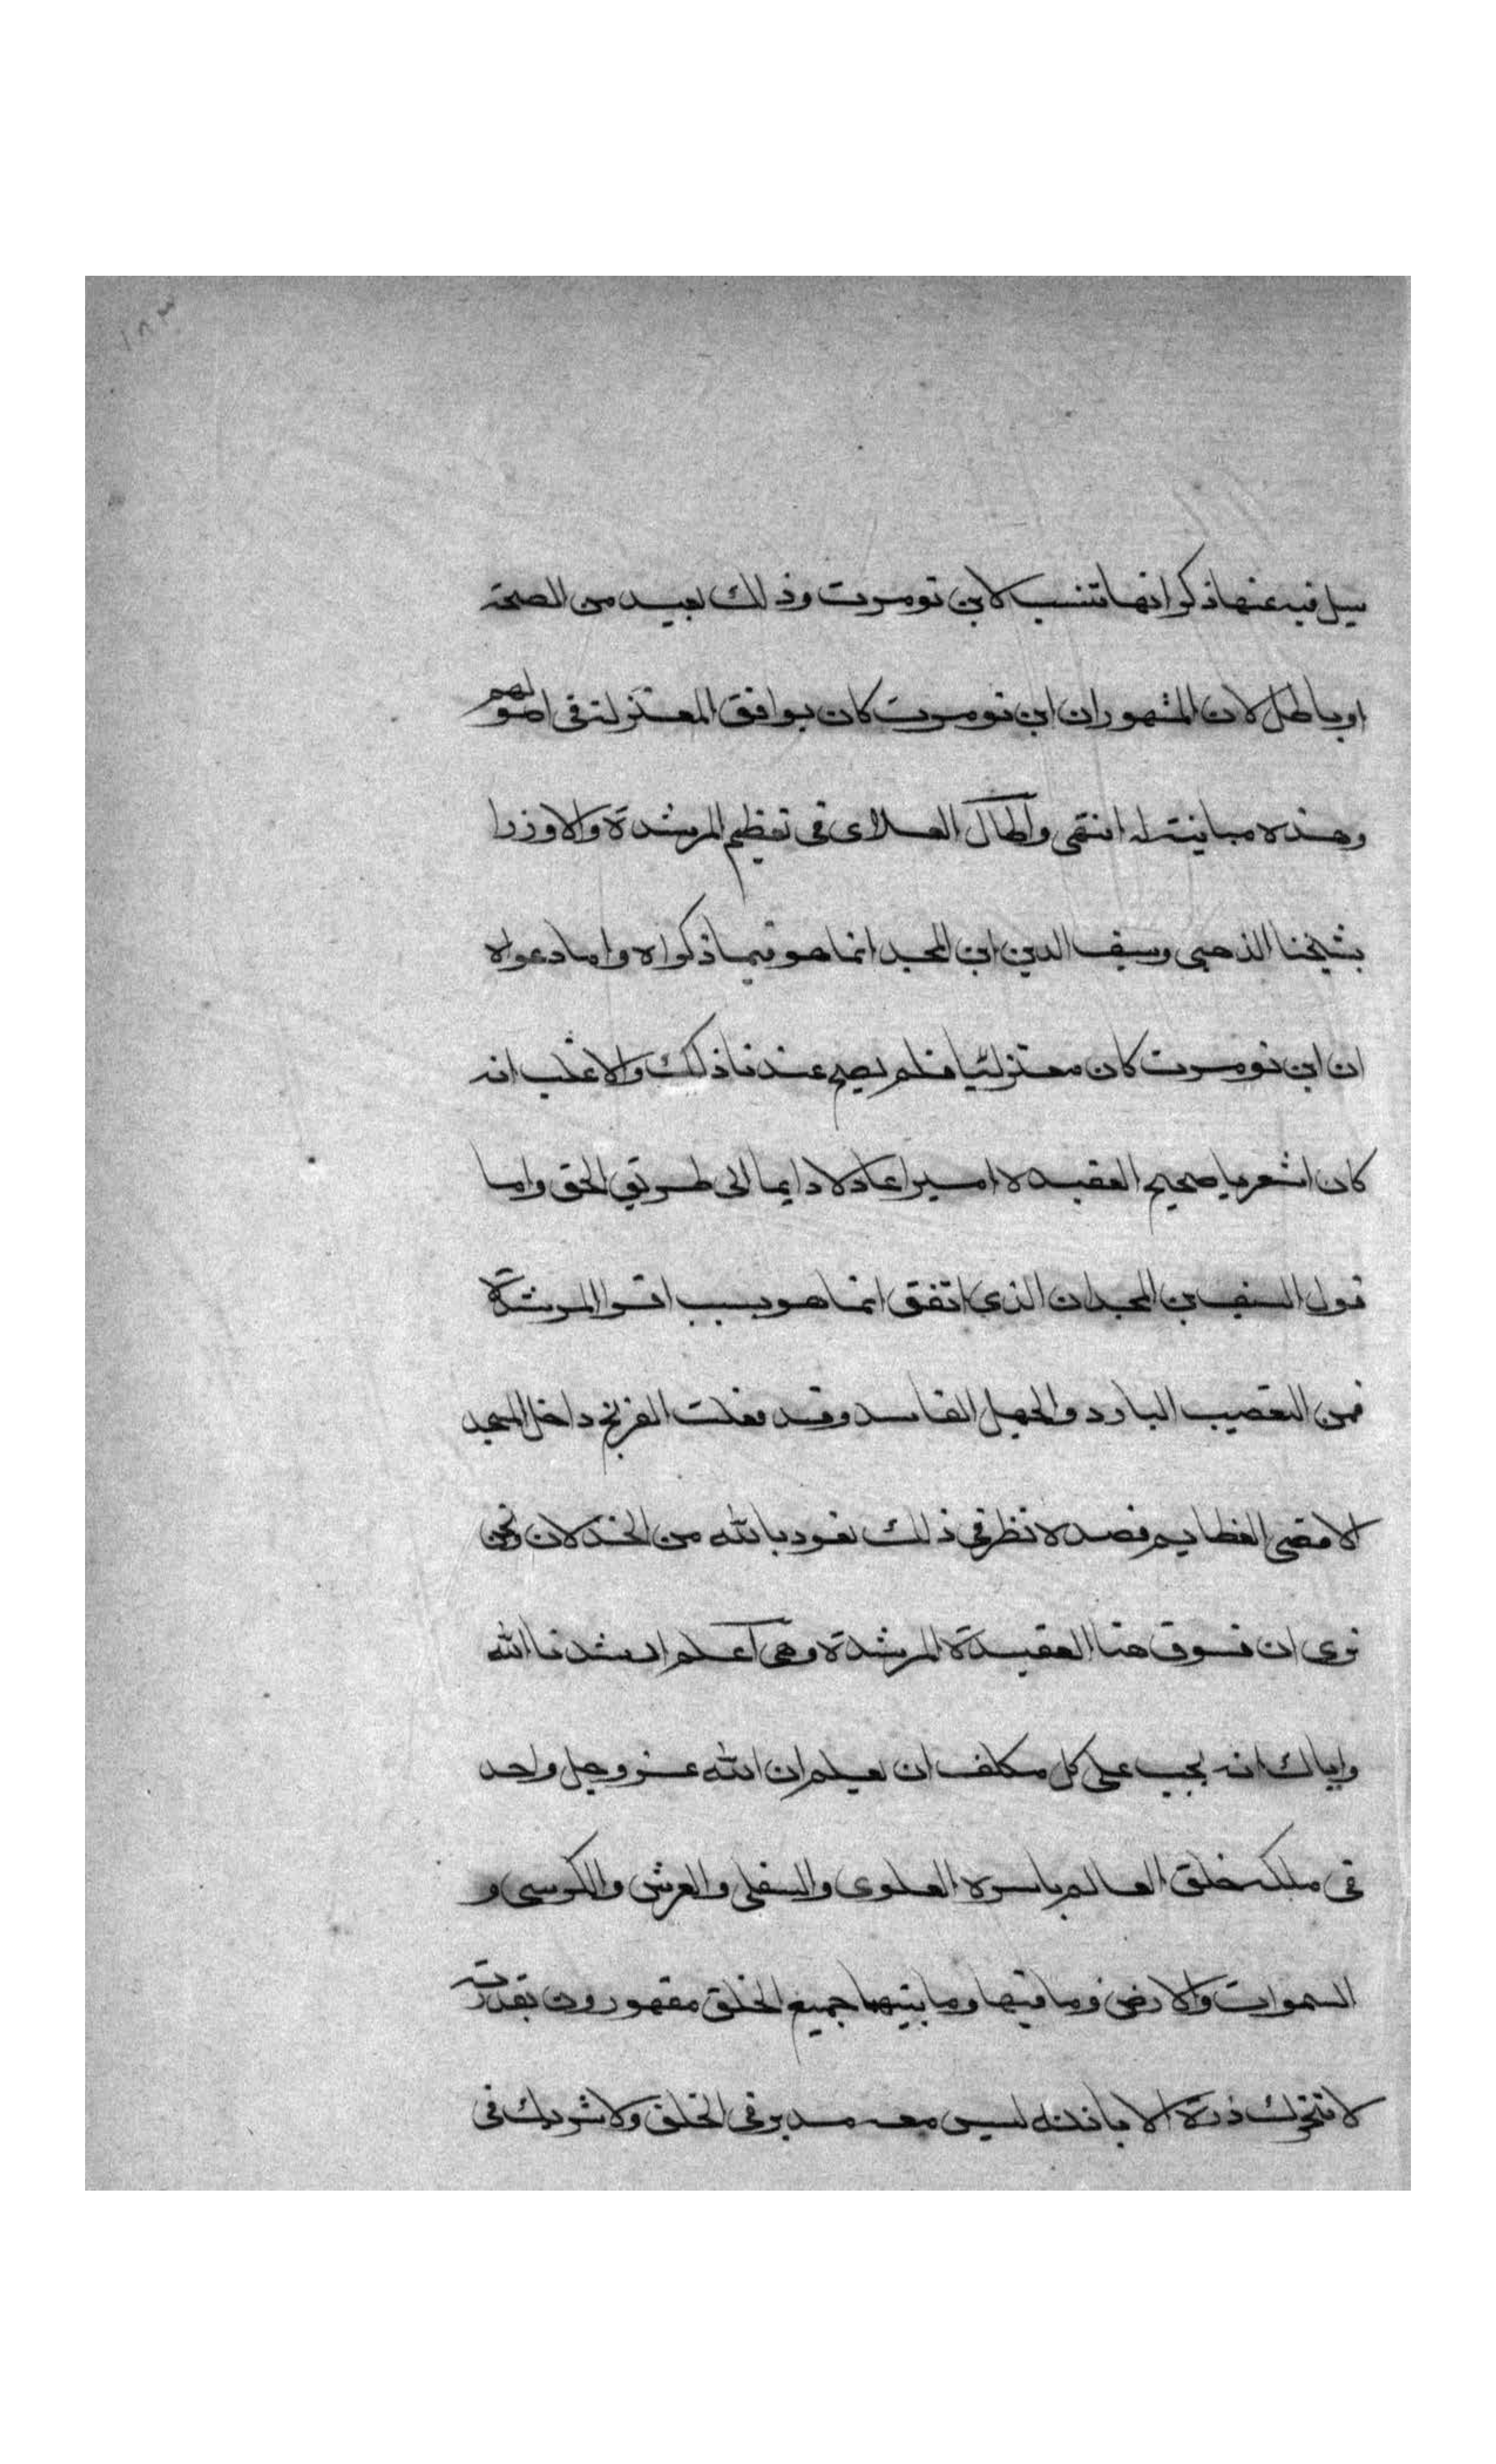 ١٨٣
سيل فيه عنها ذكر انها تنسب لابن تومرت وذلك بعيد من الصحة
او باطل لان المشهور ان ابن تومرت كان يوافق المعتزلة في اصولهم
وهذه مباينة له انتهى واطال العلاى في تعظيم المرشدة والازرا
بشيخنا الذهبي وسيف الدين ابن المجد انما هو فيما ذكراه واما دعواه
ان ابن تومرت كان معتزليا فلم يصح عندنا ذلك والاغلب انه
كان اشعريا صحيح العقيدة اميرا عادلا دايما الى طريق الحق واما
قول السيف بن المجد ان الذي اتفق انما هو بسبب اقرا المرشدة
فمن التعصب البارد والجهل الفاسد وقد فعلت الفرنج داخل المسجد
الاقصى العظايم فصد لا نظر في ذلك نعود بالله من الخذلان ونحن
نرى ان نسوق هنا العقيدة المرشدة وهي اعلم ارشدنا الله
واياك انه يجب على كل مكلف ان يعلم ان الله عز وجل واحد
في ملكه خلق العالم باسره العلوي والسفلي والعرش والكرسي و
السموات والارض وما فيها وما بينهما جميع الخلق مقهورون بقدرته
لا تتحرك ذرة الا باذنه ليس معه مدبر في الخلق ولا شريك في